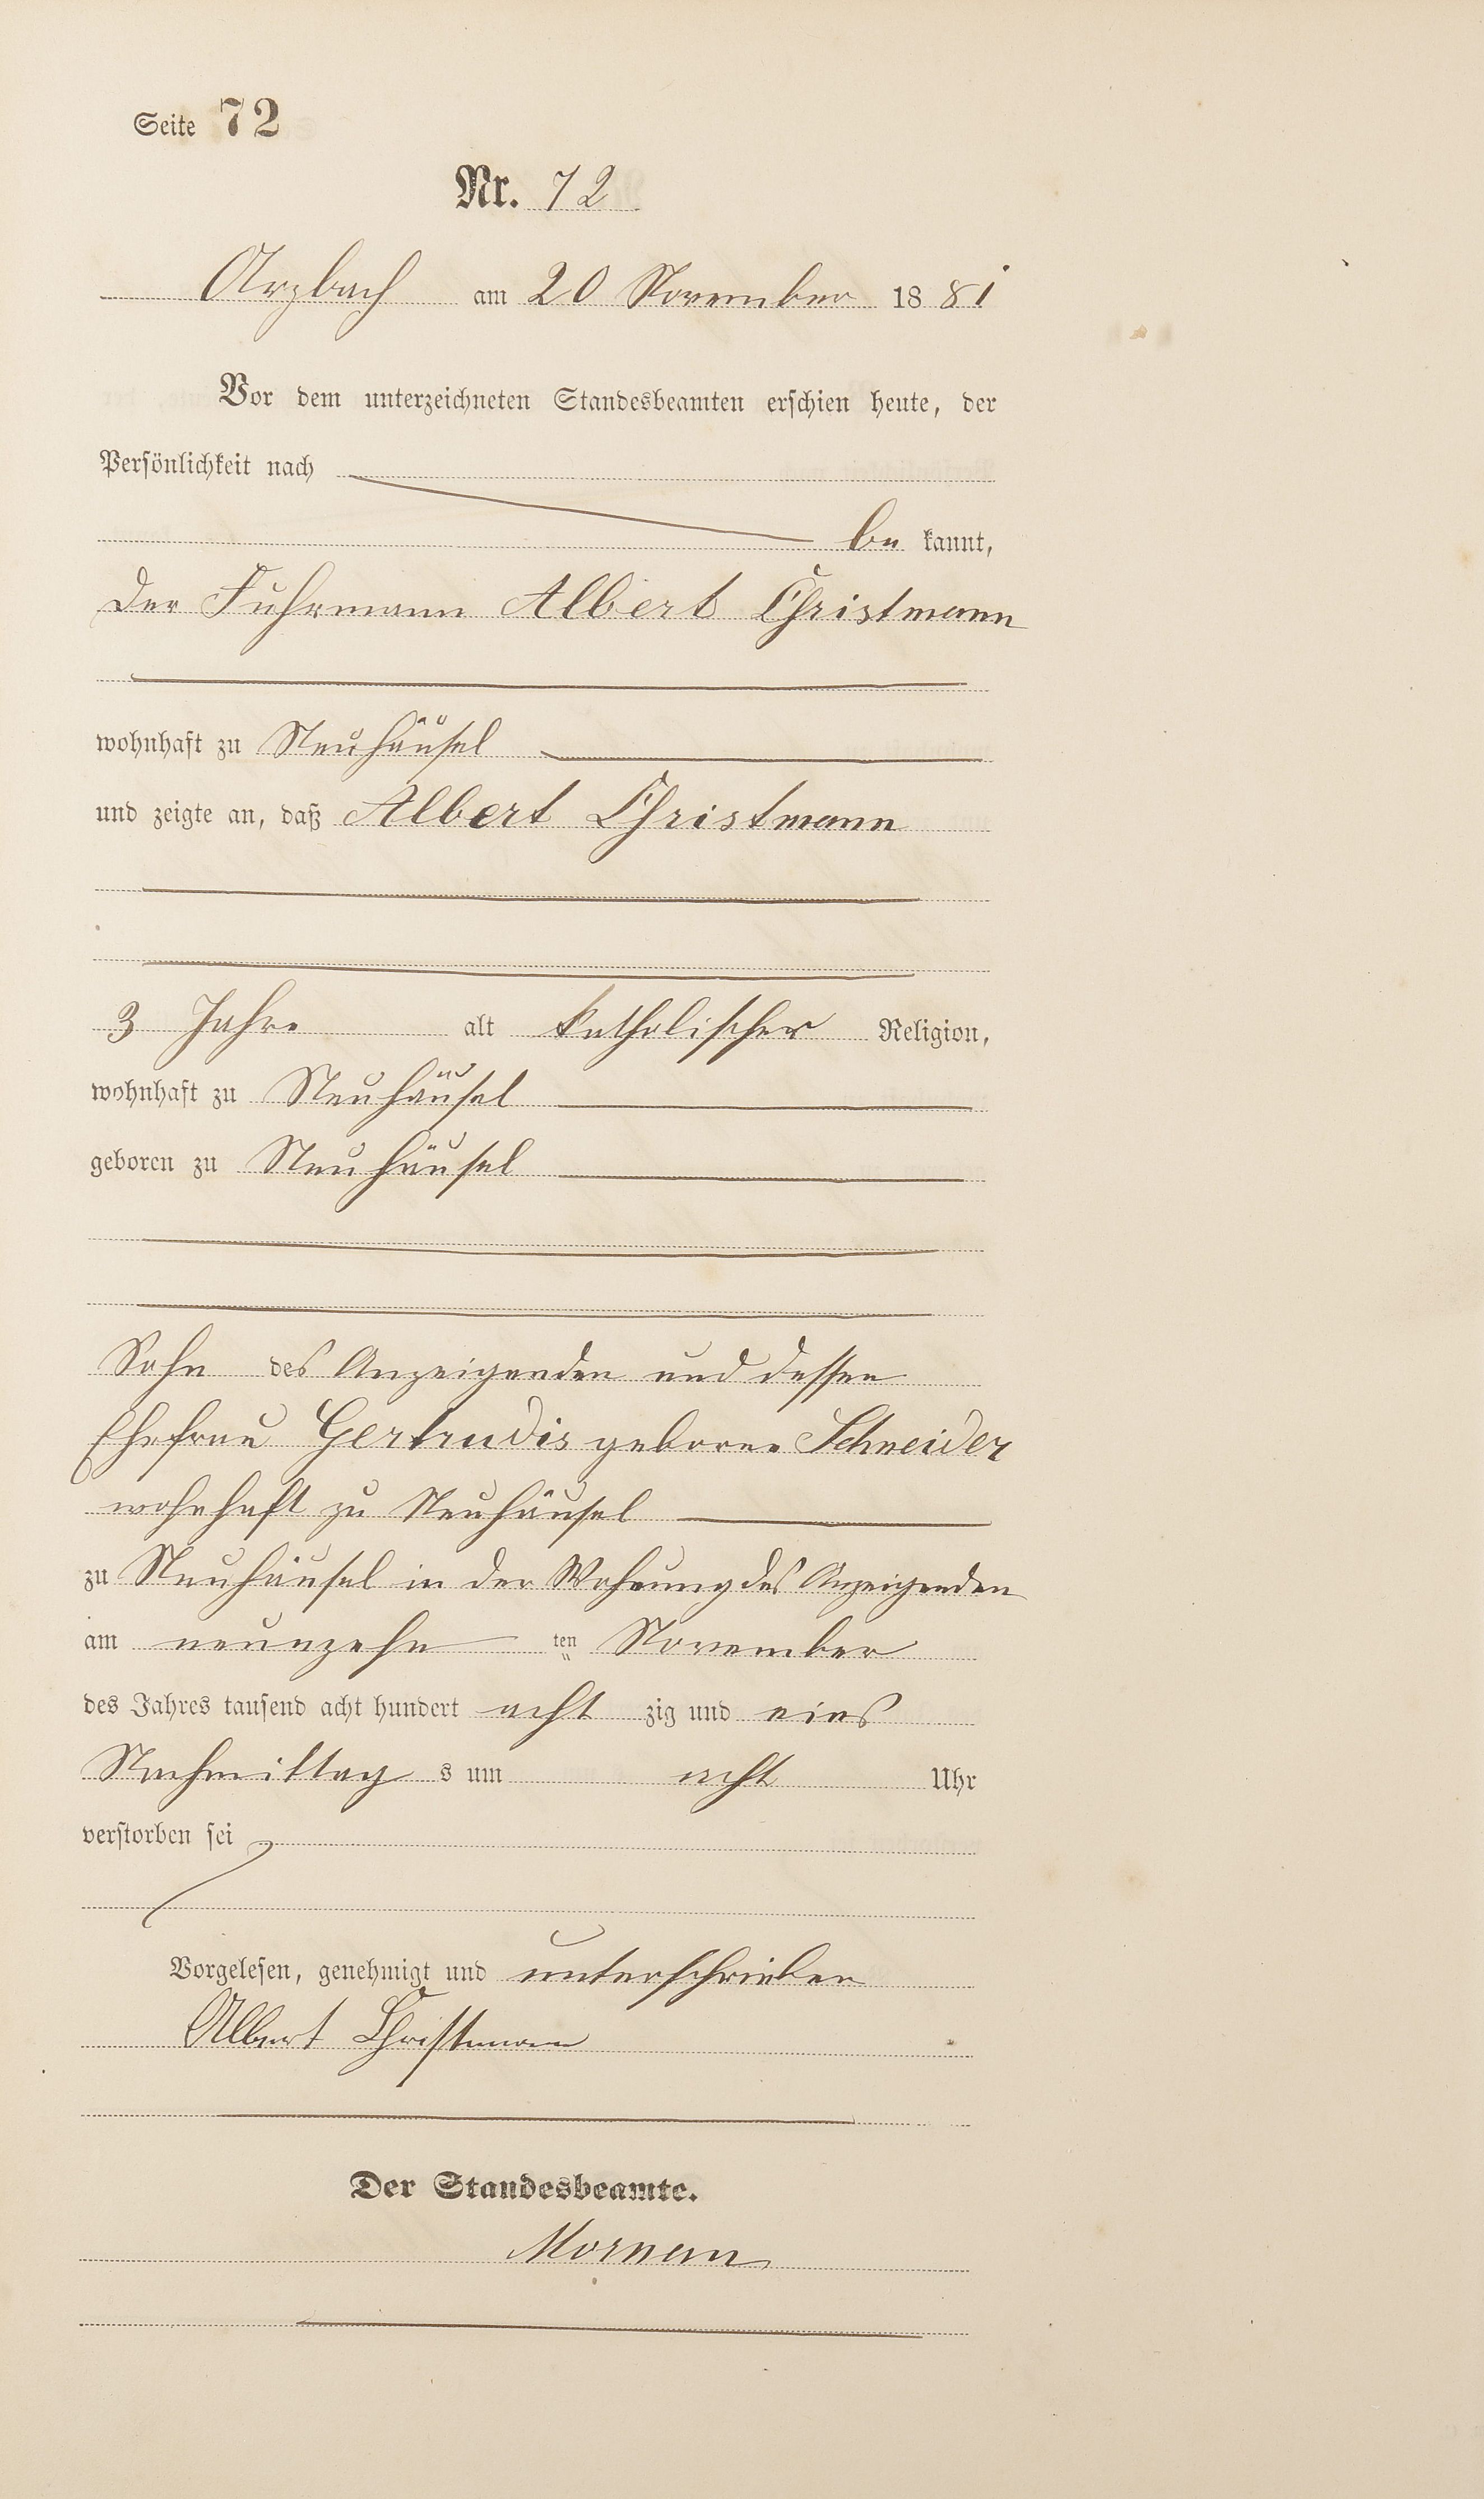 Seite 72
Nr. 72
Arzbach am 20 November 1881
Vor dem unterzeichneten Standesbeamten erschien heute, der
Persönlichkeit nach
bekannt,
der Fuhrmann Albert Christmann
wohnhaft zu Neuhäusel
und zeigte an, daß Albert Christmann
3 Jahre alt katholischer Religion,
wohnhaft zu Neuhäusel
geboren zu Neuhäusel
Sohn des Anzeigenden und dessen
Ehefrau Gertrudis geborne Schneider
wohnhaft zu Neuhäusel
zu Neuhäusel in der Wohnung des Anzeigenden
am neunzehn ten November
des Jahres tausend acht hundert acht zig und eins
Nachmittag s um acht Uhr
verstorben sei
Vorgelesen, genehmigt und unterschrieben
Albert Christmann
Der Standesbeamte.